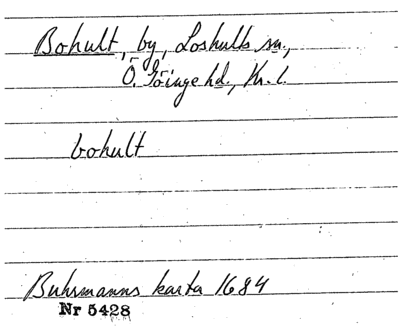 Bohult, by, Loshults sn.,
Ö. Göinge hd., Kr. l.
bohult
Buhrmanns karta 1684
Nr 5428